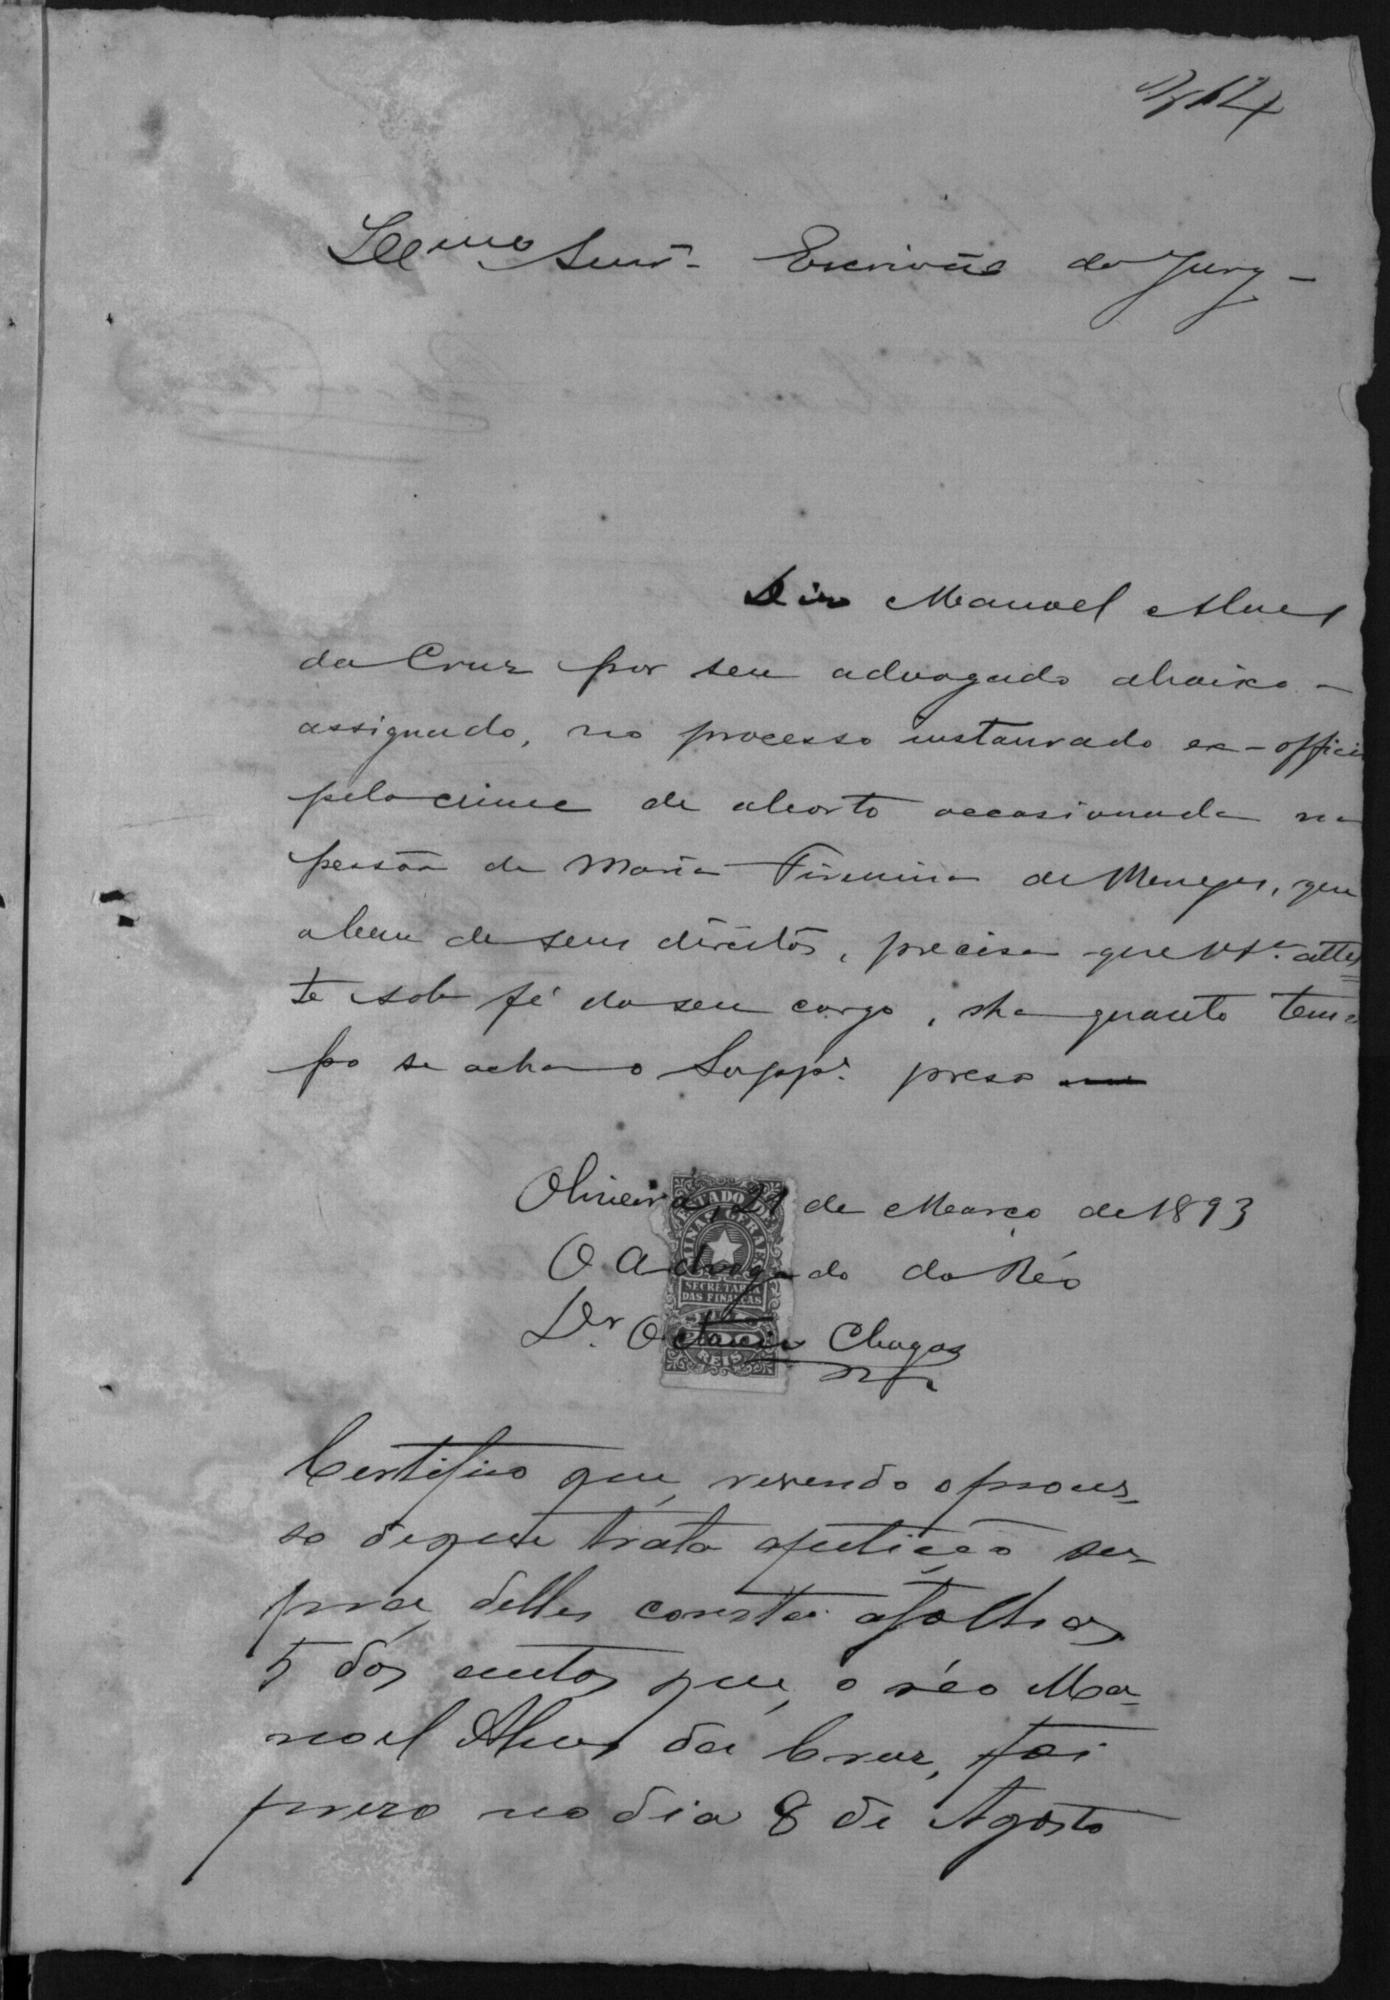 Illmo Snr. Escrivão do Jury -
Diz Manoel Alves
da Cruz por seu advogado abaixo -
assignado, no processo instaurado ex-officio
pelo crime de aborto occasionado na
pessôa de Maria Firmina de Menezes, que
a bem de seus direitos, precisa que V.S.ª attes=
te sob fé do seu cargo, ha quanto tem=
po se acha o Supp.e preso
Oliveira, 21 de Março de 1893
O Advogado do Réo
Dr. Octavio Chagas
ESTADO DE
MINAS GERAES
SECRETARIA
DAS FINANÇAS
REIS
Certifico que, revendo o proces-
so de que trata a petição su-
pra, delles consta a folhas
5 dos autos que, o réo Ma-
noel Alves da Cruz, foi
prezo no dia 8 de Agosto